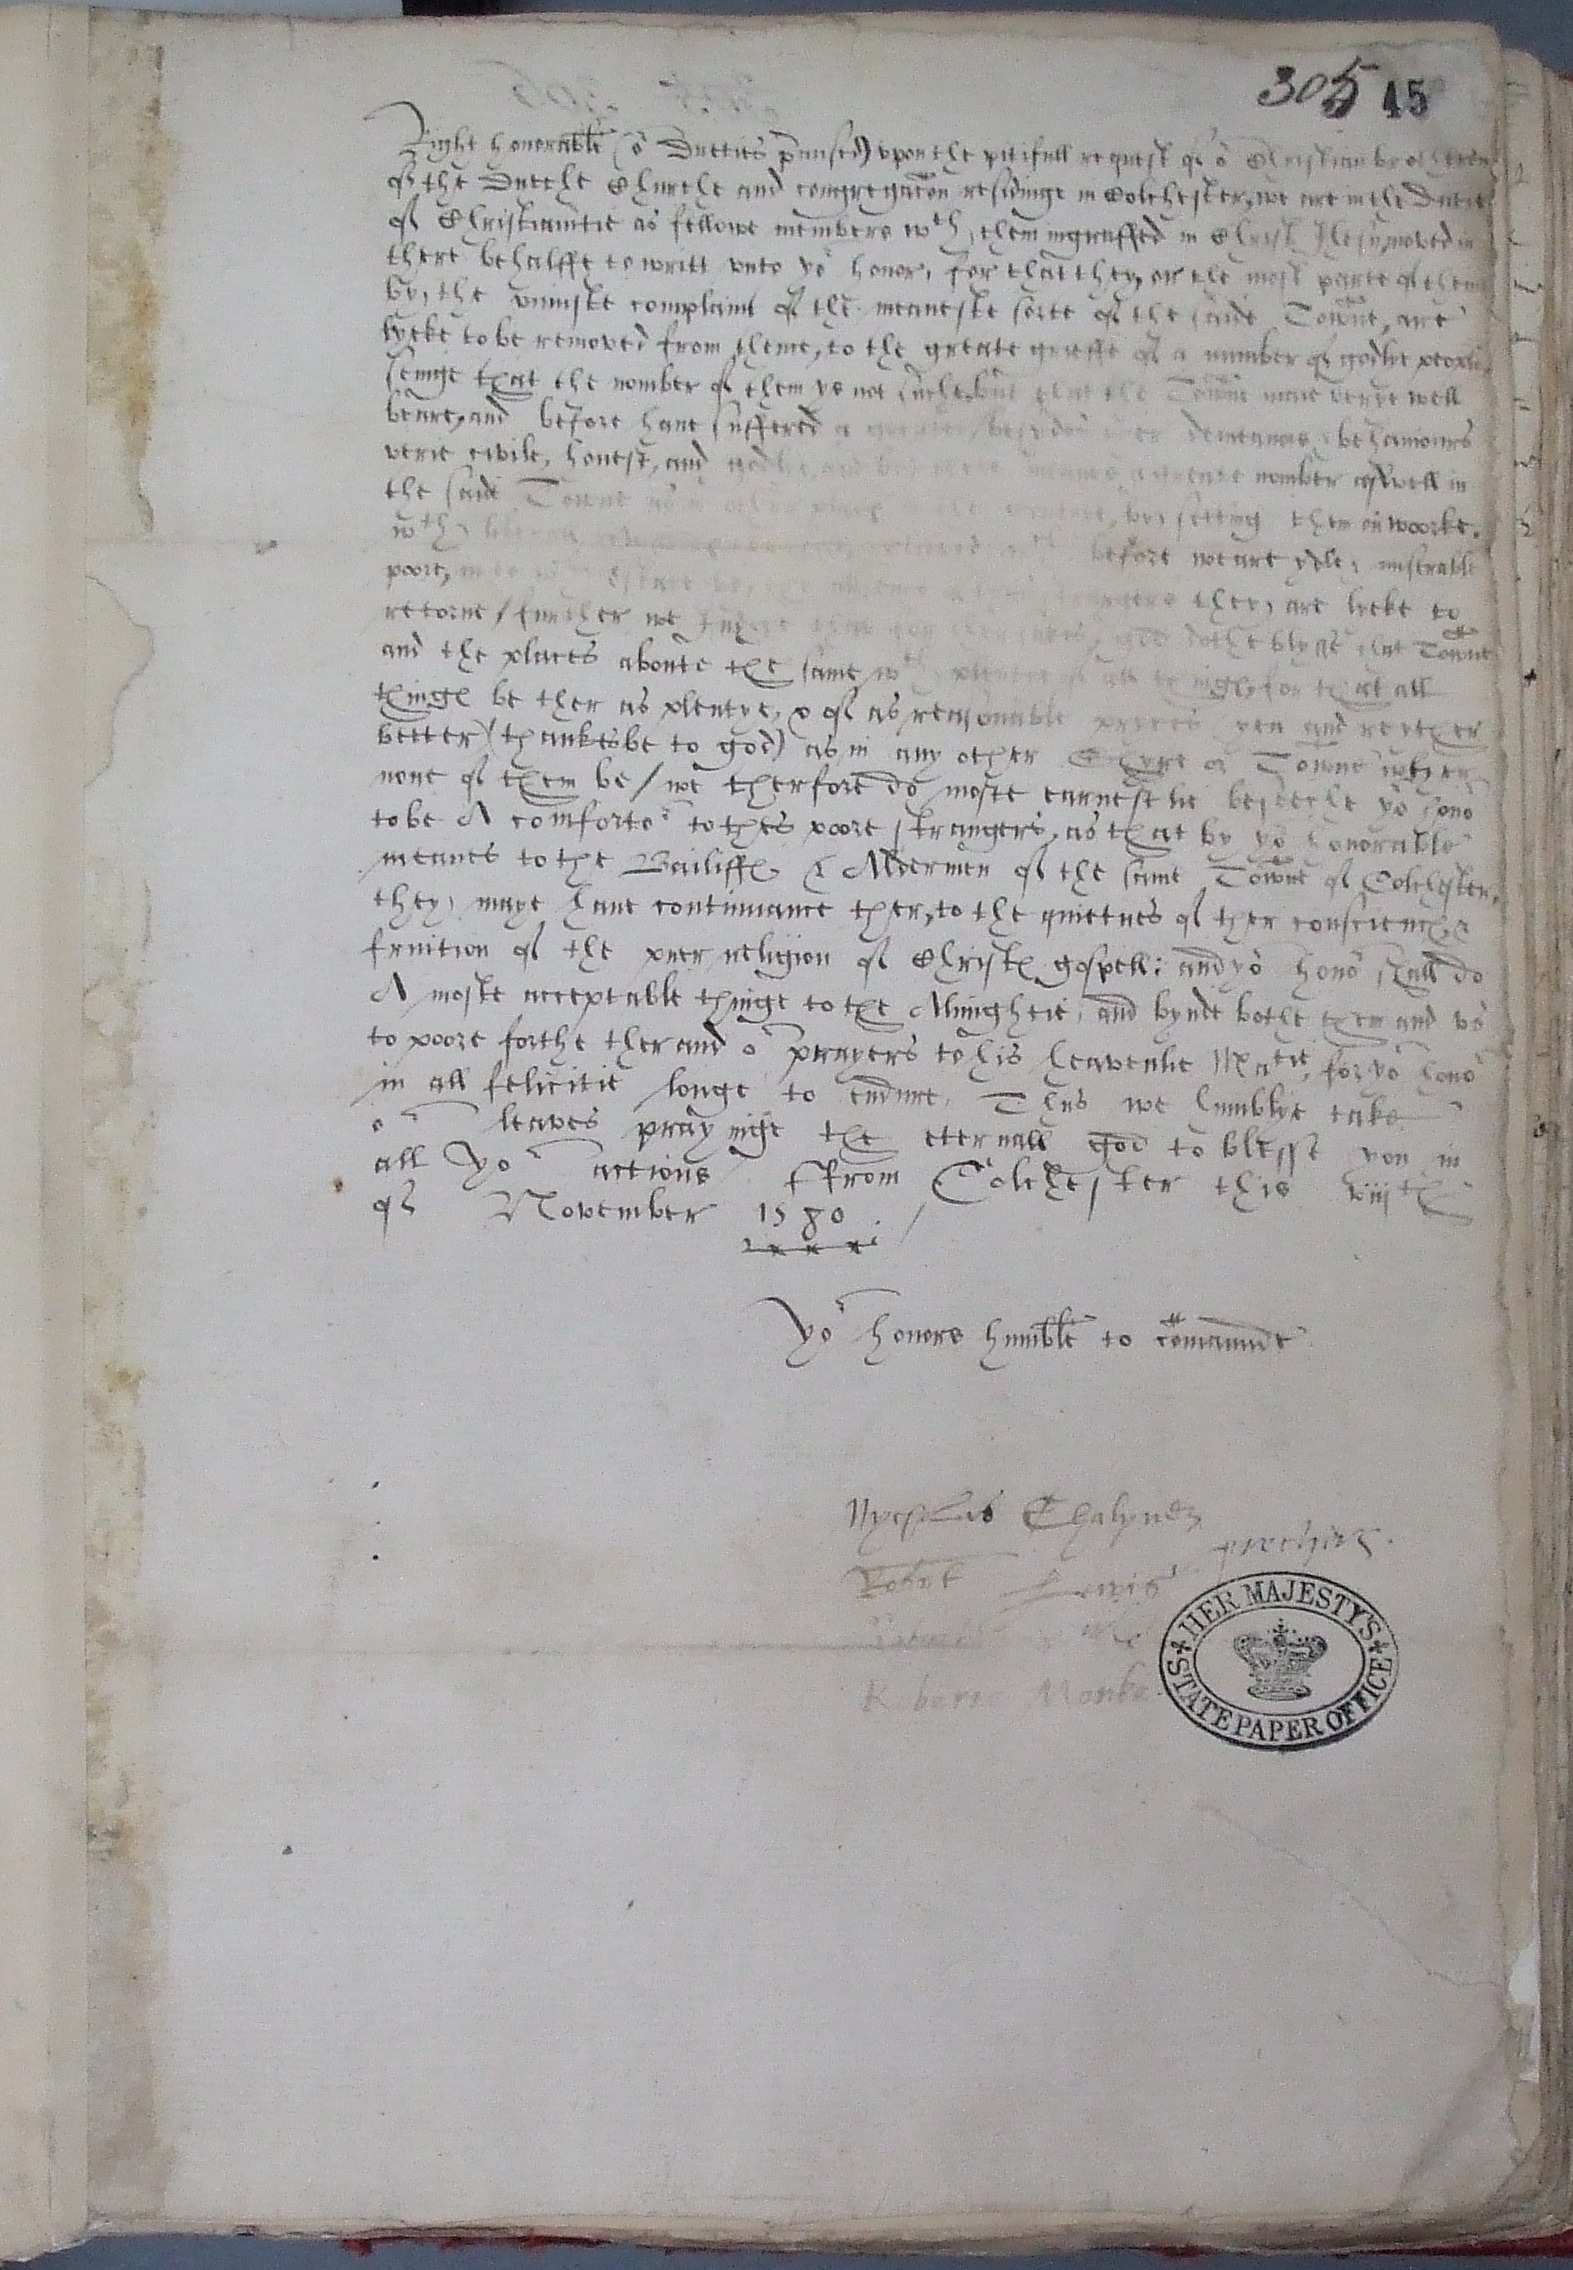 305 45
Right honorable (or Dueties p'mised) vpon the pitifull request of or Christian bretheren
of the Dutche Churche and congregacon residinge in Colchester, we are in the Dutie
of Christianitie as fellowe members wth them ingraffed in Christ Jhesu, moved in
there behalffe to writt vnto yor honor, for that they, or the most parte of them
by, the vniuste complaint of the meaneste sorte of the saide Towne, are
lyeke to be removed from theme, to the greate grieffe of a number of godlie people,
seinge that the nomber of them ys not suche, but that the Towne maie verye well
beare, and before haue suffered a greater, besydes ther demeynors, behauiours
verie civile, honest, and godlie, and by there meanes a greate nomber aswell in
the saide Towne as in other places, by setting them in woorke,
wth before weare ydle, miserable
poore, they, are lieke to
retorne / further we god dothe blysse that Towne
and the places aboute the same wth plentie of all thinges, for that all
thinges be ther as plentye, & of as reasonable pryces yea and reyther
better (thankes be to god) as in any other Shyre or Towne wher
none of them be / we therfore do moste earnestlie beseche yor honor
to be A comfortor to thes poore strangers, as that by yor honorable
meanes to the Bailiffes & Aldermen of the same Towne of Colchester,
they, maye haue continuance ther, to the quietnes of ther consciences, &
fruition of the puer religion of Christes gospell: and yor honor shall do
A moste acceptable thinge to the Almightie, and bynde bothe them and vs
to poore forthe ther and or prayers to his heavenlie Matie, for yor honor
in all felicitie longe to endure, Thus we humblye take
or leaves prayinge the eternall god to blesse you in
all yor actions / ffrom Colchester this viijth
of November 1580 /
Yor honors humble to comaunde
Nycholas Chalyner
precher
Robart Lewis
Roberte Monke
HER MAJESTY'S STATE PAPER OFFICE